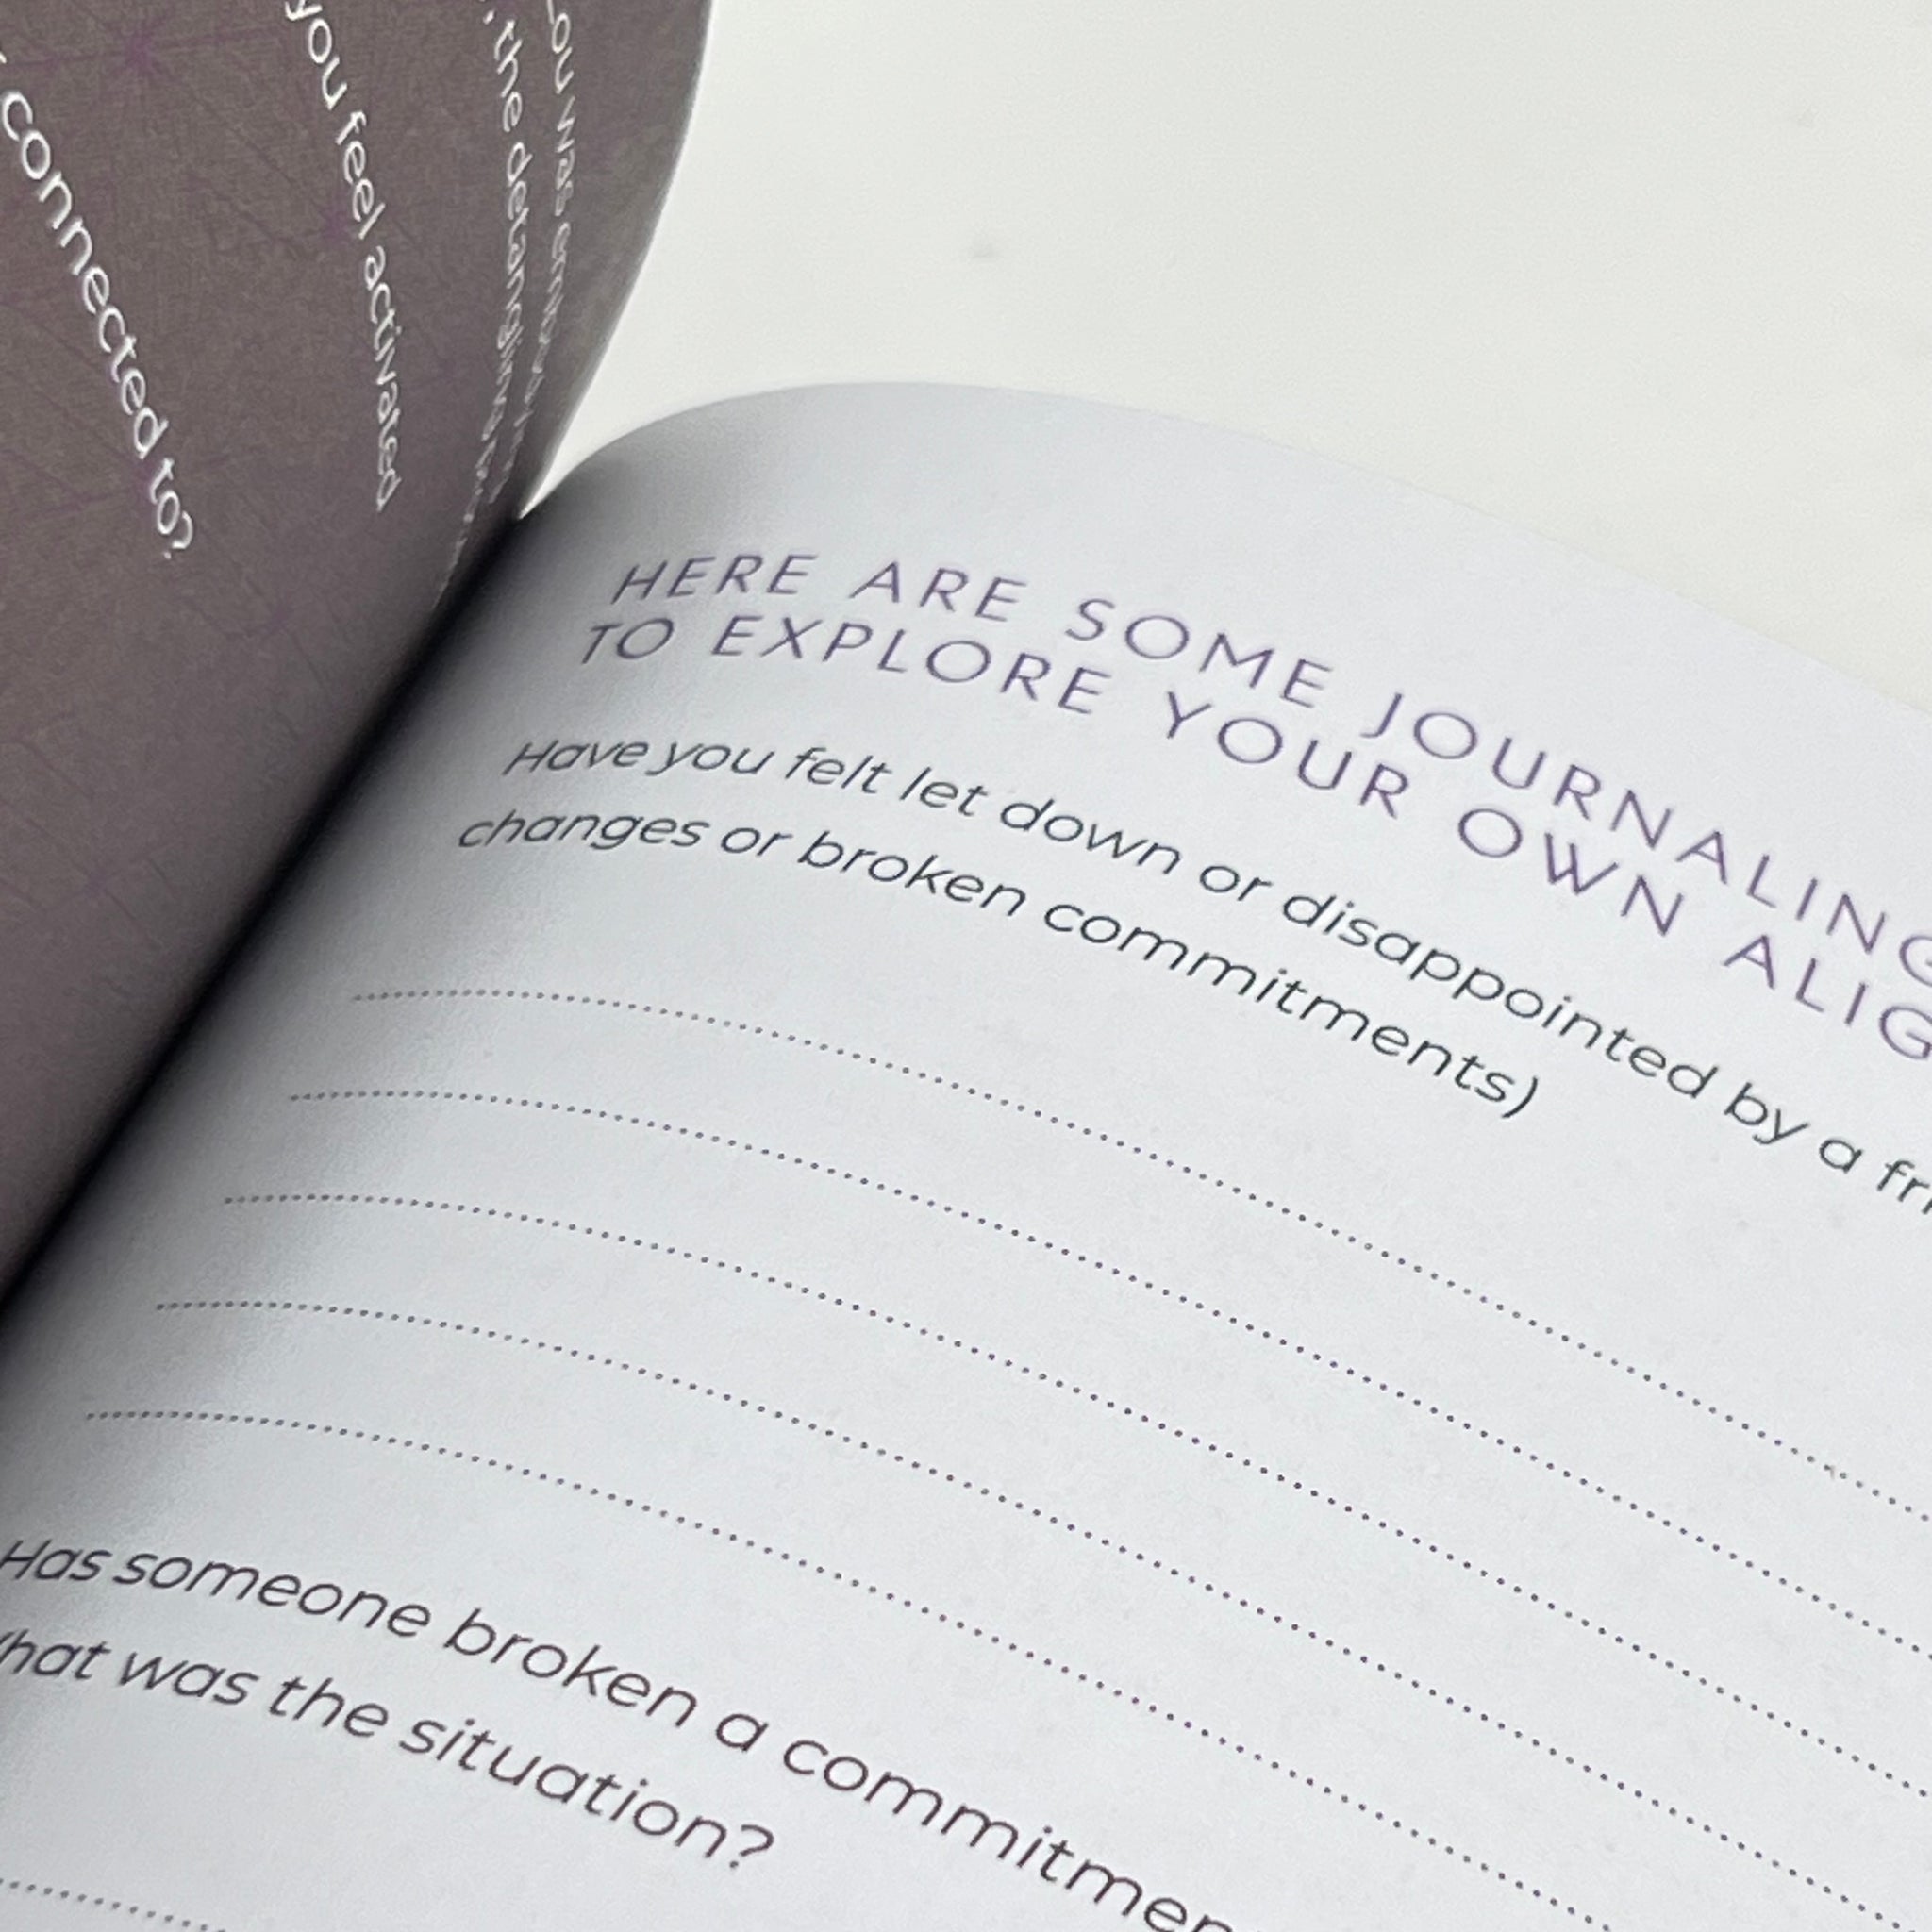 you was
, the detangling
you feel activated
connected to?
HERE ARE SOME JOURNALING
TO EXPLORE YOUR OWN ALIG
Have you felt let down or disappointed by a fri
changes or broken commitments)
Has someone broken a commitmen
hat was the situation?